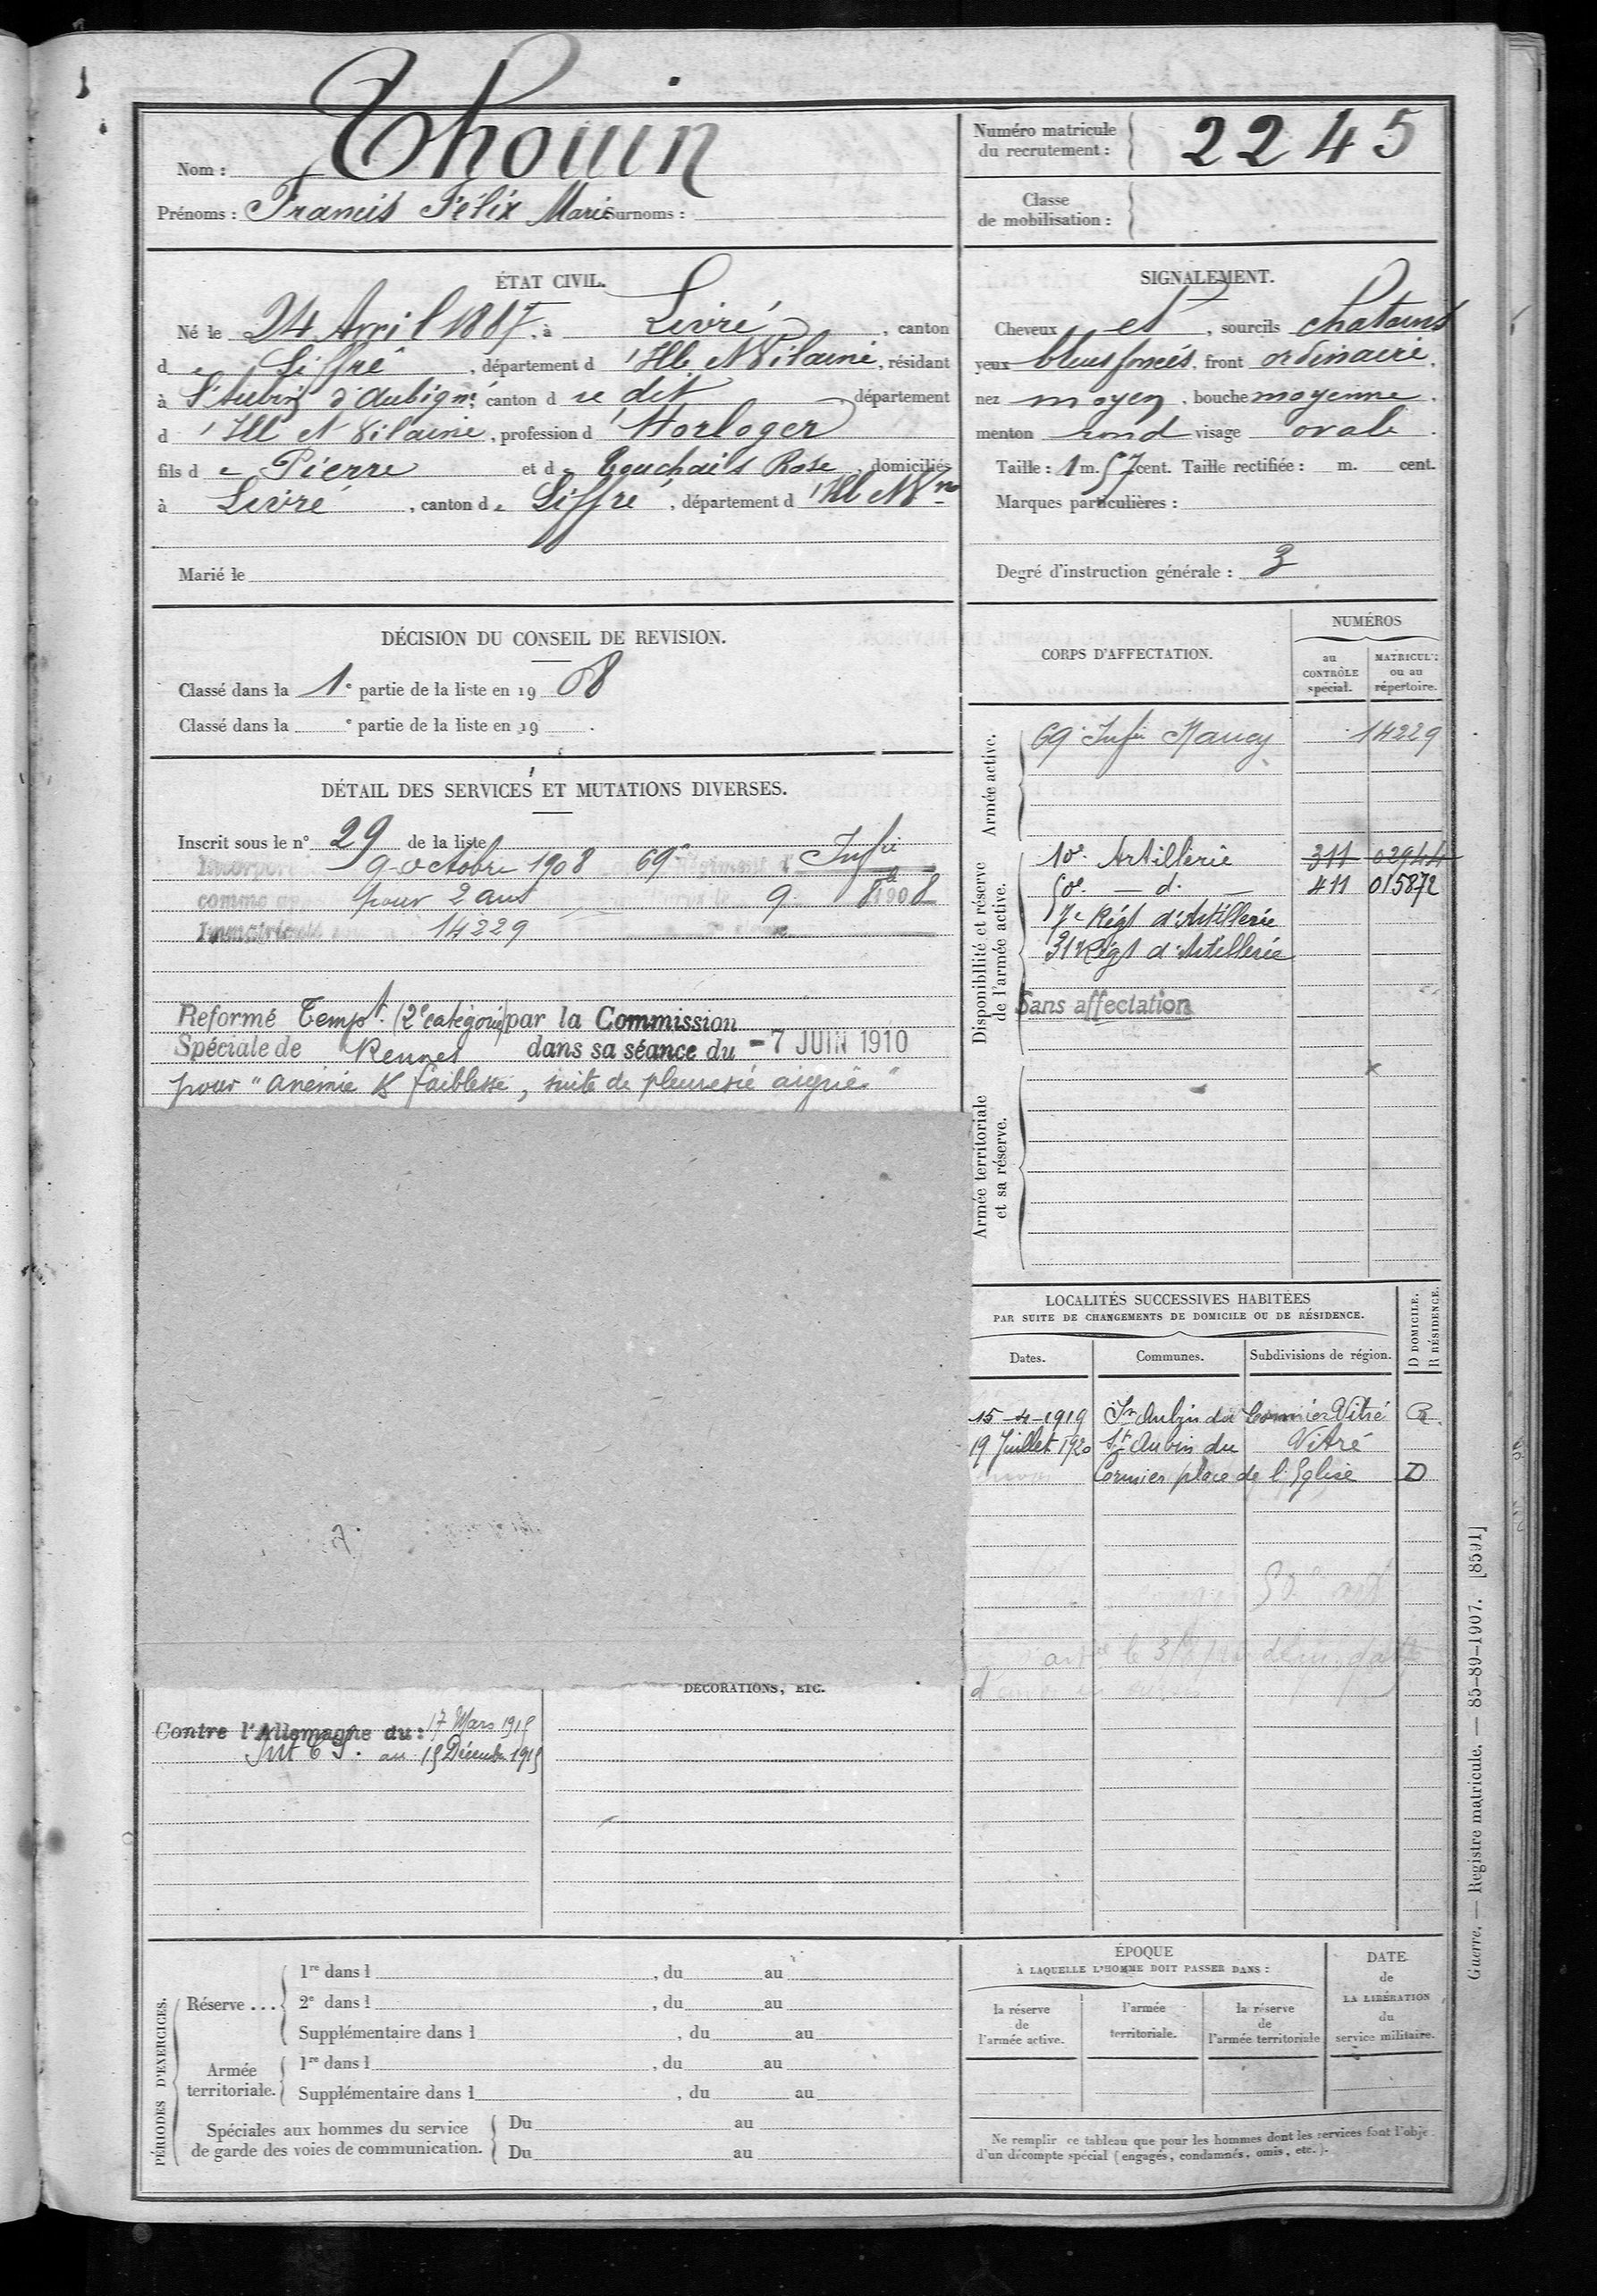 Nom : Thouin
Prénoms : Francis Félix Marie Surnoms :
Numéro matricule du recrutement : 2245
Classe de mobilisation :
ÉTAT CIVIL.
Né le 24 Avril 1887, à Livré, canton
de Liffré, département d'Ille et Vilaine, résidant
à St Aubin d'Aubigné, canton d ce dit, département
d'Ill et Vilaine, profession d'Horloger
fils de Pierre et de Touchais Rose, domiciliés
à Livré, canton de Liffré, département d'Ill et Vne
Marié le
SIGNALEMENT.
Cheveux et, sourcils chatains
yeux bleus foncés, front ordinaire,
nez moyen, bouche moyenne,
menton rond visage ovale.
Taille : 1 m. 57 cent. Taille rectifiée : m. cent.
Marques particulières :
Degré d'instruction générale : 3
DÉCISION DU CONSEIL DE REVISION.
Classé dans la 1e partie de la liste en 1908
Classé dans la e partie de la liste en 19 .
DÉTAIL DES SERVICES ET MUTATIONS DIVERSES.
Inscrit sous le n° 29 de la liste
9 octobre 1908 69e Infie
pour 2 ans 9 8 1908
14229
Reformé Tempt. (2e catégorie) par la Commission
Spéciale de Rennes dans sa séance du -7 JUIN 1910
pour "anémie & faiblesse, suite de pleuresie aigüe"
CORPS D'AFFECTATION.
NUMÉROS
au CONTRÔLE spécial.
MATRICULE ou au répertoire.
Armée active.
69e Infie Nancy 14229
Disponibilité et réserve de l'armée active.
10e Artillerie 311 02944
50e — d° — 411 015872
7e Régt d'Artillerie
31e Régt d'Artillerie
Sans affectation
Armée territoriale et sa réserve.
LOCALITÉS SUCCESSIVES HABITÉES
PAR SUITE DE CHANGEMENTS DE DOMICILE OU DE RÉSIDENCE.
D DOMICILE.
R RÉSIDENCE.
Dates. Communes. Subdivisions de région.
15-4-1919 St Aubin du Cormier Vitré R.
19 Juillet 1920 St Aubin du Vitré
Cormier place de l'Eglise D
DÉCORATIONS, ETC.
Contre l'Allemagne du : 17 Mars 1915
Int C S. au 15 Décembre 1915
PÉRIODES D'EXERCICES.
Réserve ...
1re dans l , du au
2e dans l , du au
Supplémentaire dans l , du au
Armée territoriale.
1re dans l , du au
Supplémentaire dans l , du au
Spéciales aux hommes du service
de garde des voies de communication.
Du au
Du au
ÉPOQUE
À LAQUELLE L'HOMME DOIT PASSER DANS :
la réserve de l'armée active.
l'armée territoriale.
la réserve de l'armée territoriale
DATE de LA LIBÉRATION du service militaire.
Ne remplir ce tableau que pour les hommes dont les services font l'obje
d'un décompte spécial (engagés, condamnés, omis, etc.).
Guerre. — Registre matricule. — 85-89-1907. [8591]